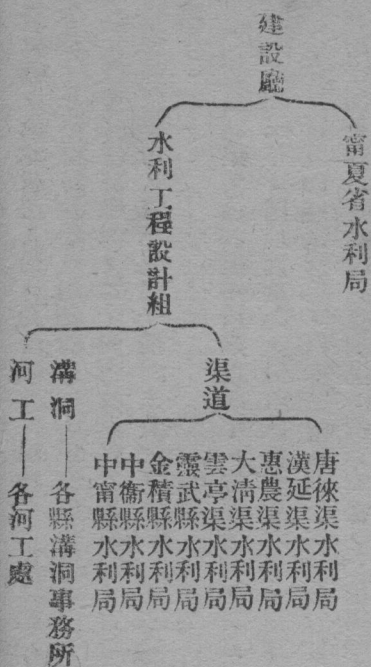 建設廳
甯夏省水利局
水利工程設計組
渠道
唐徠渠水利局
漢延渠水利局
惠農渠水利局
大清渠水利局
雲亭渠水利局
靈武縣水利局
金積縣水利局
中衞縣水利局
中甯縣水利局
溝洞——各縣溝洞事務所
河工——各河工處